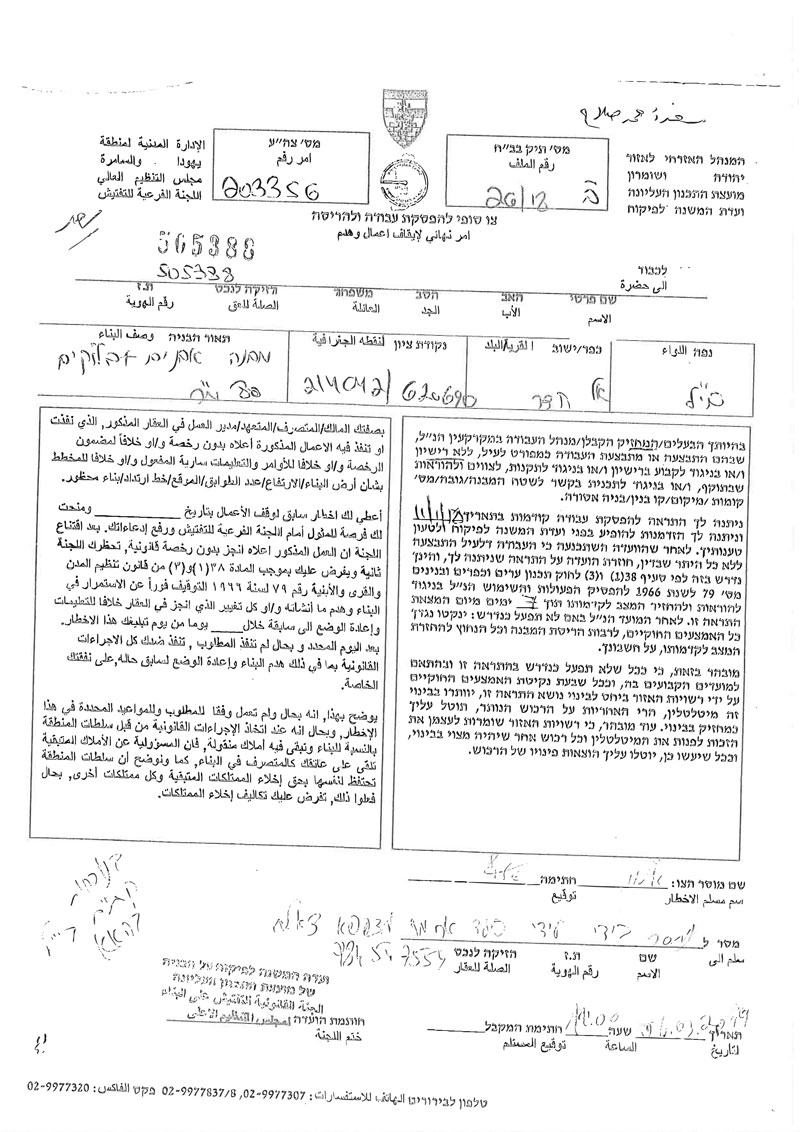 המנהל האזרחי לאזור
יהודה ושומרון
מועצת התכנון העליונה
ועדת המשנה לפיקוח
מס' תיק בב"ח
رقم الملف
ב 26/18
מס' צה"ע
امر رقم
203356
الإدارة المدنية لمنطقة
يهودا والسامرة
مجلس التنظيم العالي
اللجنة الفرعية للتفتيش
צו סופי להפסקת עבודה ולהריסה
امر نهائي لايقاف اعمال وهدم
505388
505388
לכבוד
الى حضرة
שם פרטי האב הסב משפחה הזיקה לנכס ת.ז
الاسم الأب الجد العائلة الصلة للعقار رقم الهوية
נפה اللواء
כפר/ישוב القرية/البلد
נקודת ציון لنقطة الجغرافية
תאור הבניה وصف البناء
אל
620690
מבנה
בהיותך הבעלים/המחזיק/הקבלן/מנהל העבודה במקרקעין הנ"ל,
שבהם התבצעה או מתבצעת העבודה כמפורט לעיל, ללא רישיון
ו/או בניגוד לקבוע ברישיון ו/או בניגוד לתקנות, לצווים ולהוראות
שבתוקף, ו/או בניגוד לתכנית בקשר לשטח המבנה/גובה/מס'
קומות/מיקום/קו בנין/בניה אסורה.
ניתנה לך התראה להפסקת עבודה קודמות בתאריך
וניתנה לך הזדמנות להופיע בפני ועדת המשנה לפיקוח ולטעון
טענותיך. לאחר שהוועדה השתכנעה כי העבודה דלעיל התבצעה
ללא כל היתר שבדין, חוזרת הועדה על התראה שניתנה לך, והינך
נדרש בזה לפי סעיף 38(1) ו(3) לחוק תכנון ערים וכפרים ובנינים
מס' 79 לשנת 1966 להפסיק הפעולות והשימוש הנ"ל בניגוד
להוראות ולהחזיר המצב לקדמותו תוך 7 ימים מיום המצאת
התראה זו. לאחר המועד הנ"ל באם לא תפעל כנדרש: ינקטו נגדך
כל האמצעים החוקיים, לרבות הריסת המבנה וכל הנחוץ להחזרת
המצב לקדמותו, על חשבונך.
מובהר בזאת, כי ככל שלא תפעל כנדרש בהתראה זו ובהתאם
למועדים הקבועים בה, וככל שבעת נקיטת האמצעים החוקיים
על ידי רשויות האזור ביחס לבינוי נושא התראה זו, יוותרו בבינוי
זה מיטלטלין, הרי האחריות על הרכוש הנותר, תוטל עליך
כמחזיק בבינוי. עוד מובהר, כי רשויות האזור שומרות לעצמן את
הזכות לפנות את המיטלטלין וכל רכוש אחר שיהיה מצוי בבינוי,
וככל שיעשו כן, יוטלו עליך הוצאות פינויו של הרכוש.
بصفتك المالك/المتصرف/المتعهد/مدير العمل في العقار المذكور, الذي نفذت
او تنفذ فيه الاعمال المذكورة أعلاه بدون رخصة و/او خلافا لمضمون
الرخصة و/او خلافا للأوامر والتعليمات سارية المفعول و/او خلافا للمخطط
بشأن أرض البناء/الارتفاع/عدد الطوابق/الموقع/خط ارتداد/بناء محظور.
أعطي لك اخطار سابق لوقف الأعمال بتاريخ ______ ومنحت
لك فرصة للمثول أمام اللجنة الفرعية للتفتيش ورفع إدعاءاتك. بعد اقتناع
اللجنة ان العمل المذكور اعلاه انجز بدون رخصة قانونية, تحظرك اللجنة
ثانية ويفرض عليك بموجب المادة ٣٨(١)و(٣) من قانون تنظيم المدن
والقرى والأبنية رقم ٧٩ لسنة ١٩٦٦ التوقيف فوراً عن الاستمرار في
البناء وهدم ما أنشائه و/او كل تغيير الذي انجز في العقار خلافا للتعليمات
وإعادة الوضع الى سابقة خلال____ يوما من يوم تبليغك هذا الاخطار.
بعد اليوم المحدد و بحال لم تنفذ المطلوب , تنفذ ضدك كل الاجراءات
القانونية بما في ذلك هدم البناء وإعادة الوضع لسابق حاله, على نفقتك
الخاصة.
يوضح بهذا, انه بحال ولم تعمل وفقا للمطلوب وللمواعيد المحددة في هذا
الإخطار, وبحال انه عند اتخاذ الإجراءات القانونية من قبل سلطات المنطقة
بالنسبة للبناء وتبقى فيه أملاك منقولة, فان المسؤولية عن الأملاك المتبقية
تلقى على عاتقك كالمتصرف في البناء, كما ونوضح أن سلطات المنطقة
تحتفظ لنفسها بحق إخلاء الممتلكات المتبقية وكل ممتلكات أخرى, بحال
فعلوا ذلك, تفرض عليك تكاليف إخلاء الممتلكات.
שם מוסר הצו: חתימה
اسم مسلم الاخطار توقيع
מסר ל
سلم الى
שם ת.ז הזיקה לנכס
الاسم رقم الهوية الصلة للعقار
ועדת המשנה לפיקוח על הבניה
של מועצת התכנון העליונה
اللجنة القانونية للتفتيش على البناء
لمجلس التنظيم الأعلى
חותמת הועדה
ختم اللجنة
תאריך שעה 14:00 חתימת המקבל
لتاريخ الساعة توقيع المستلم
טלפון לבירורים الهاتف للاستفسارات: 02-9977307, 02-9977837/8 פקס الفاكس: 02-9977320